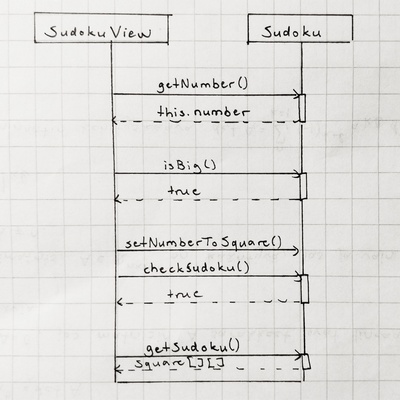 SudokuView
Sudoku
getNumber()
this.number
isBig()
true
setNumberToSquare()
checkSudoku()
true
getSudoku()
square[][]